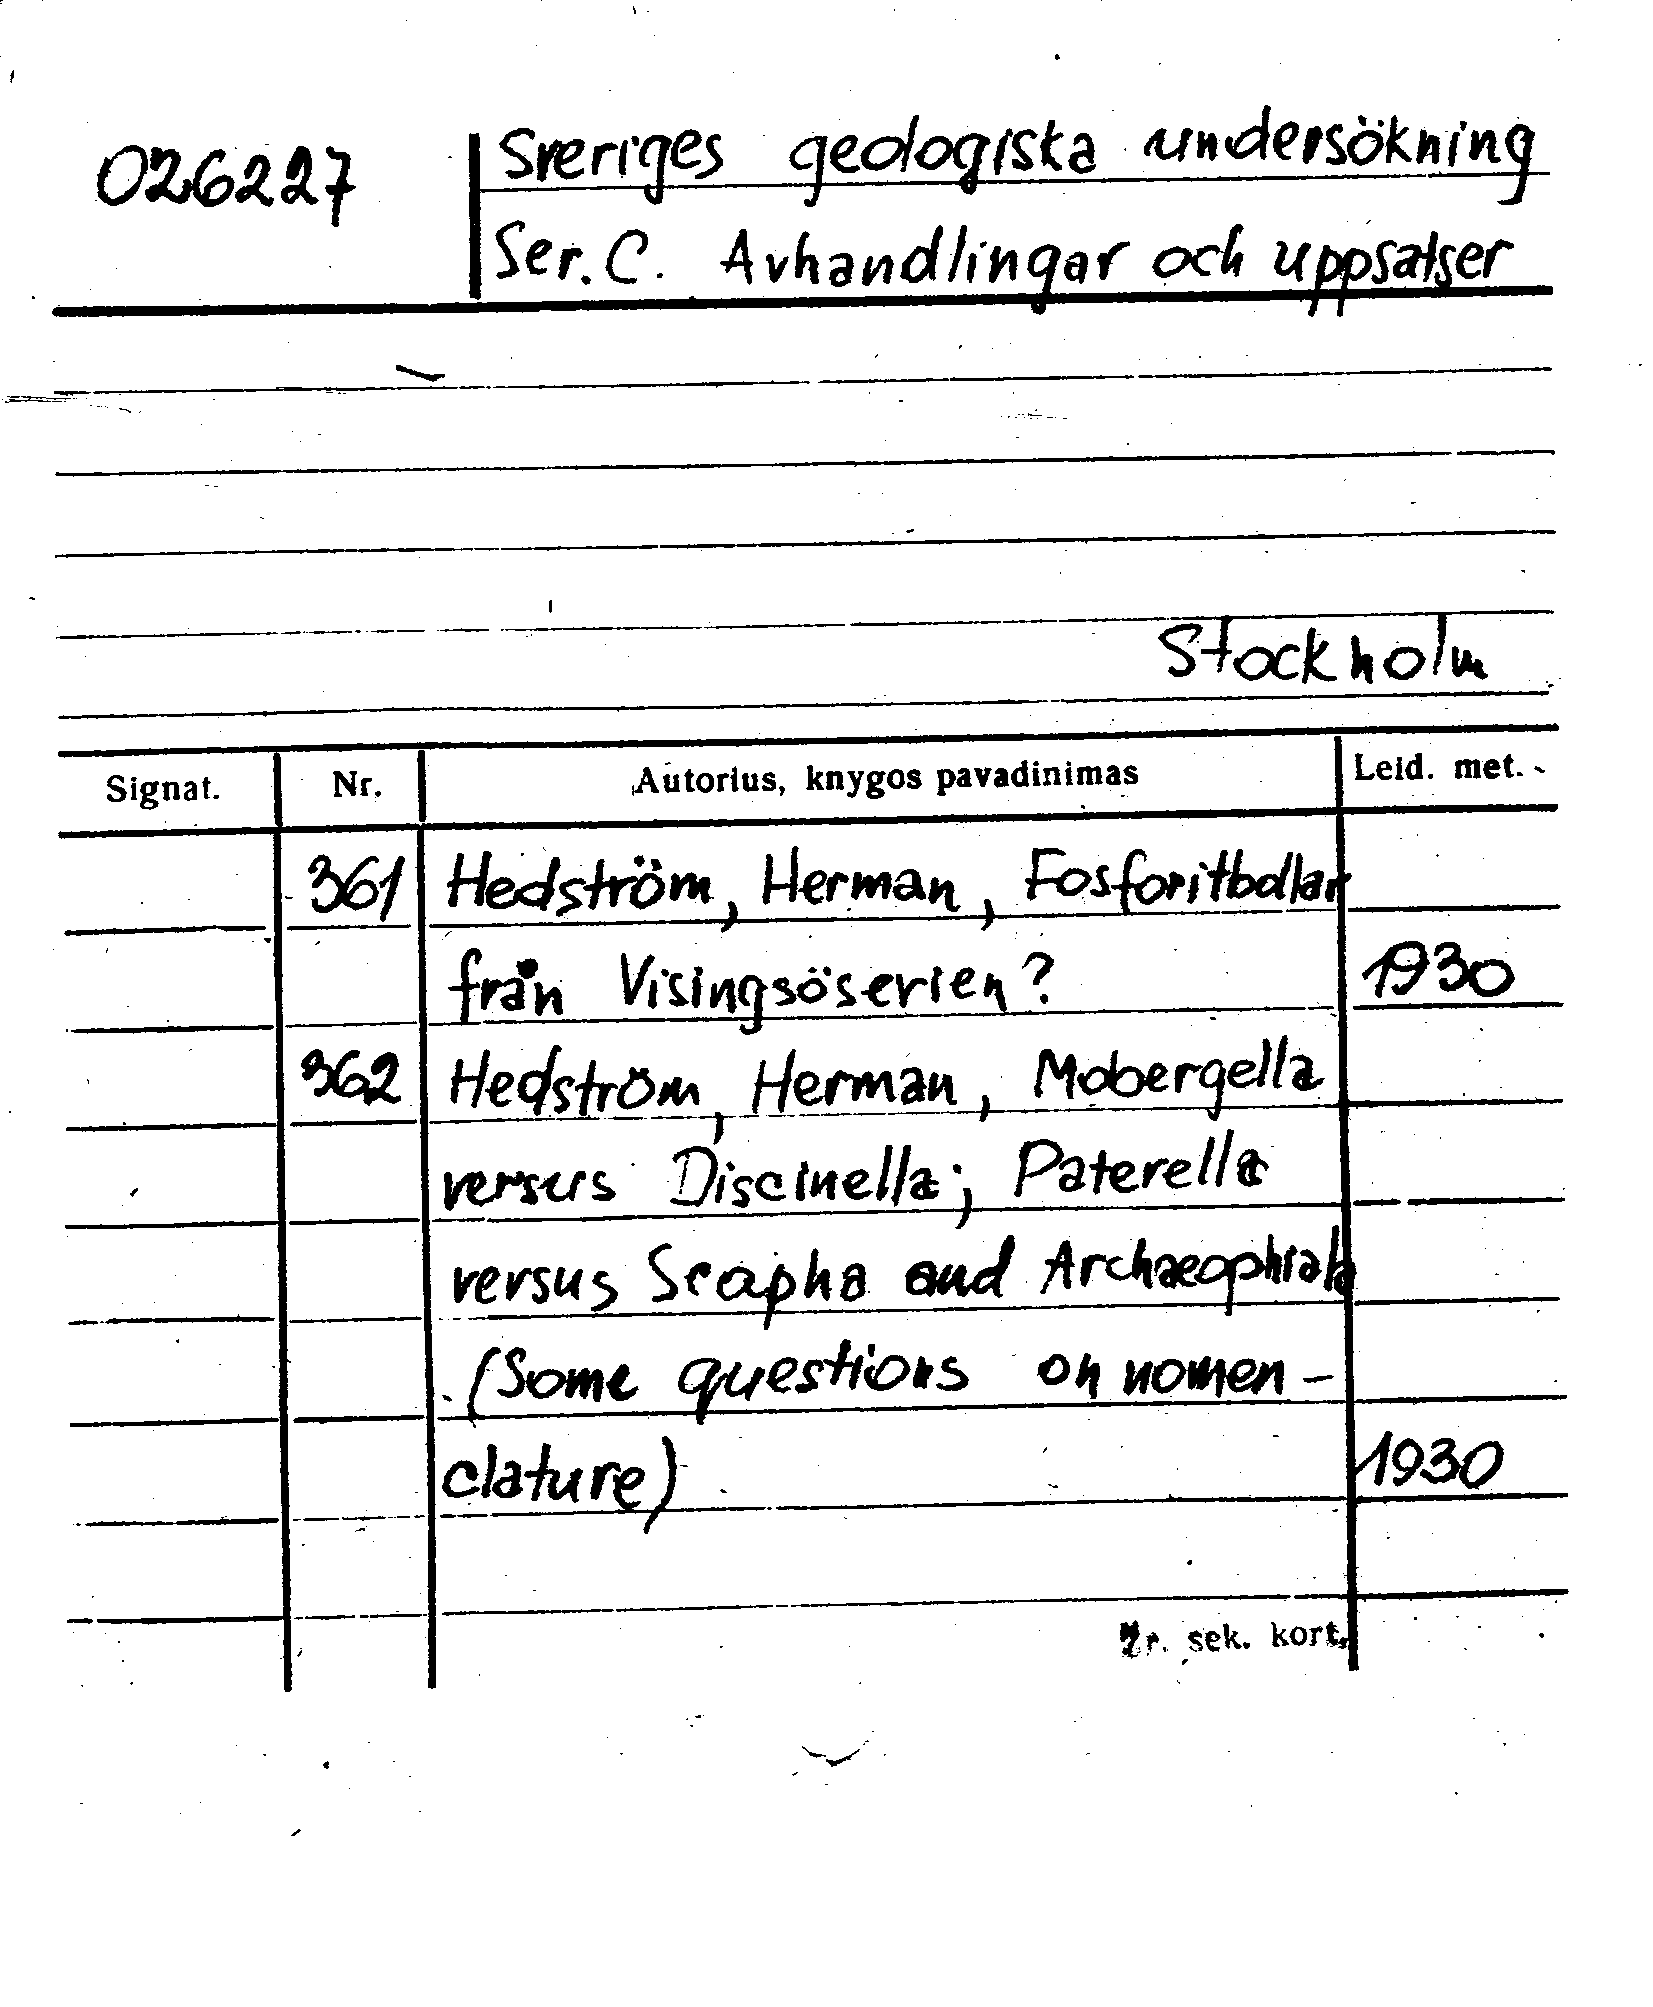 026227
Sveriges geologiska undersökning
Ser. C. Avhandlingar och uppsatser
Stockholm
Signat. Nr. Autorius, knygos pavadinimas Leid. met.
361 Hedström, Herman, Fosforitbollar
från Visingsöserien? 1930
362 Hedström, Herman, Mobergella
versus Discinella; Paterella
versus Scapha and Archaeophiala
(Some questions on nomen-
clature) 1930
žr. sek. kort.